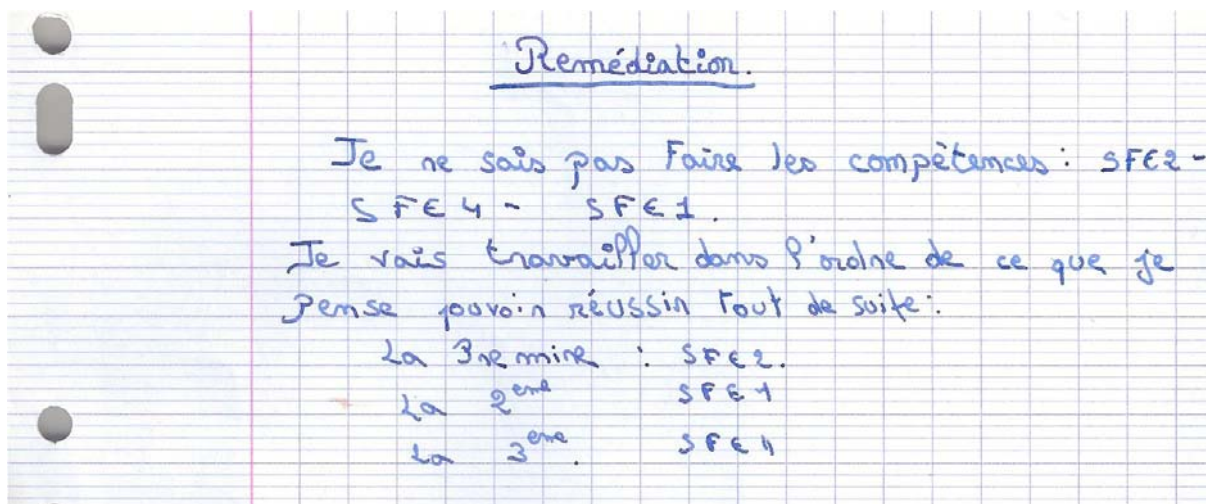 Remédiation.
Je ne sais pas Faire les compètences : SFE2 -
SFE4 - SFE1.
Je vais travailler dans l'ordre de ce que je
Pense pouvoir réussir Tout de suite :
La Premire : SFE2.
La 2eme SFE1
La 3eme. SFE4